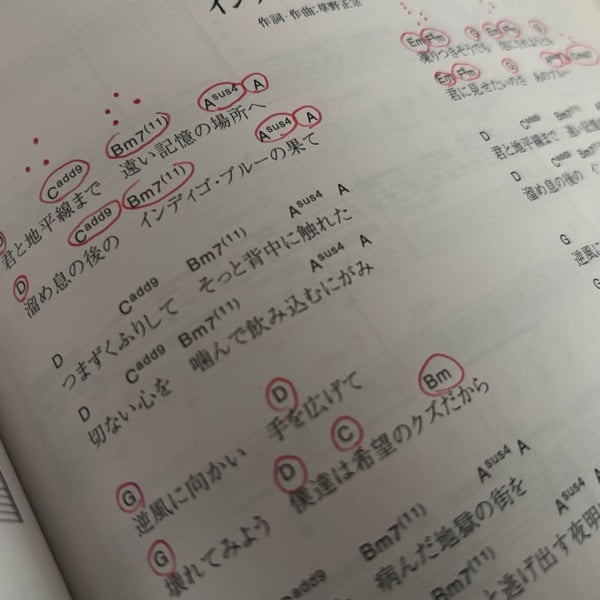 作詞・作曲:草野正宗
D Cadd9 Bm7(11) Asus4 A
君と地平線まで 遠い記憶の場所へ
D Cadd9 Bm7(11) Asus4 A
溜め息の後の インディゴ・ブルーの果て
D Cadd9 Bm7(11) Asus4 A
つまずくふりして そっと背中に触れた
D Cadd9 Bm7(11) Asus4 A
切ない心を 噛んで飲み込むにがみ
G D Bm
逆風に向かい 手を広げて
G D C
壊れてみよう 僕達は希望のクズだから
Cadd9 Bm7(11) Asus4 A
病んだ地獄の街を
Bm7(11) Asus4
と逃げ出す夜明
Em F#m G
凍りつきそうでも
Em F#m G
君に見せたいのさ
D Cadd9
君と地平線まで
D Cadd9
溜め息の後の
G
逆風に